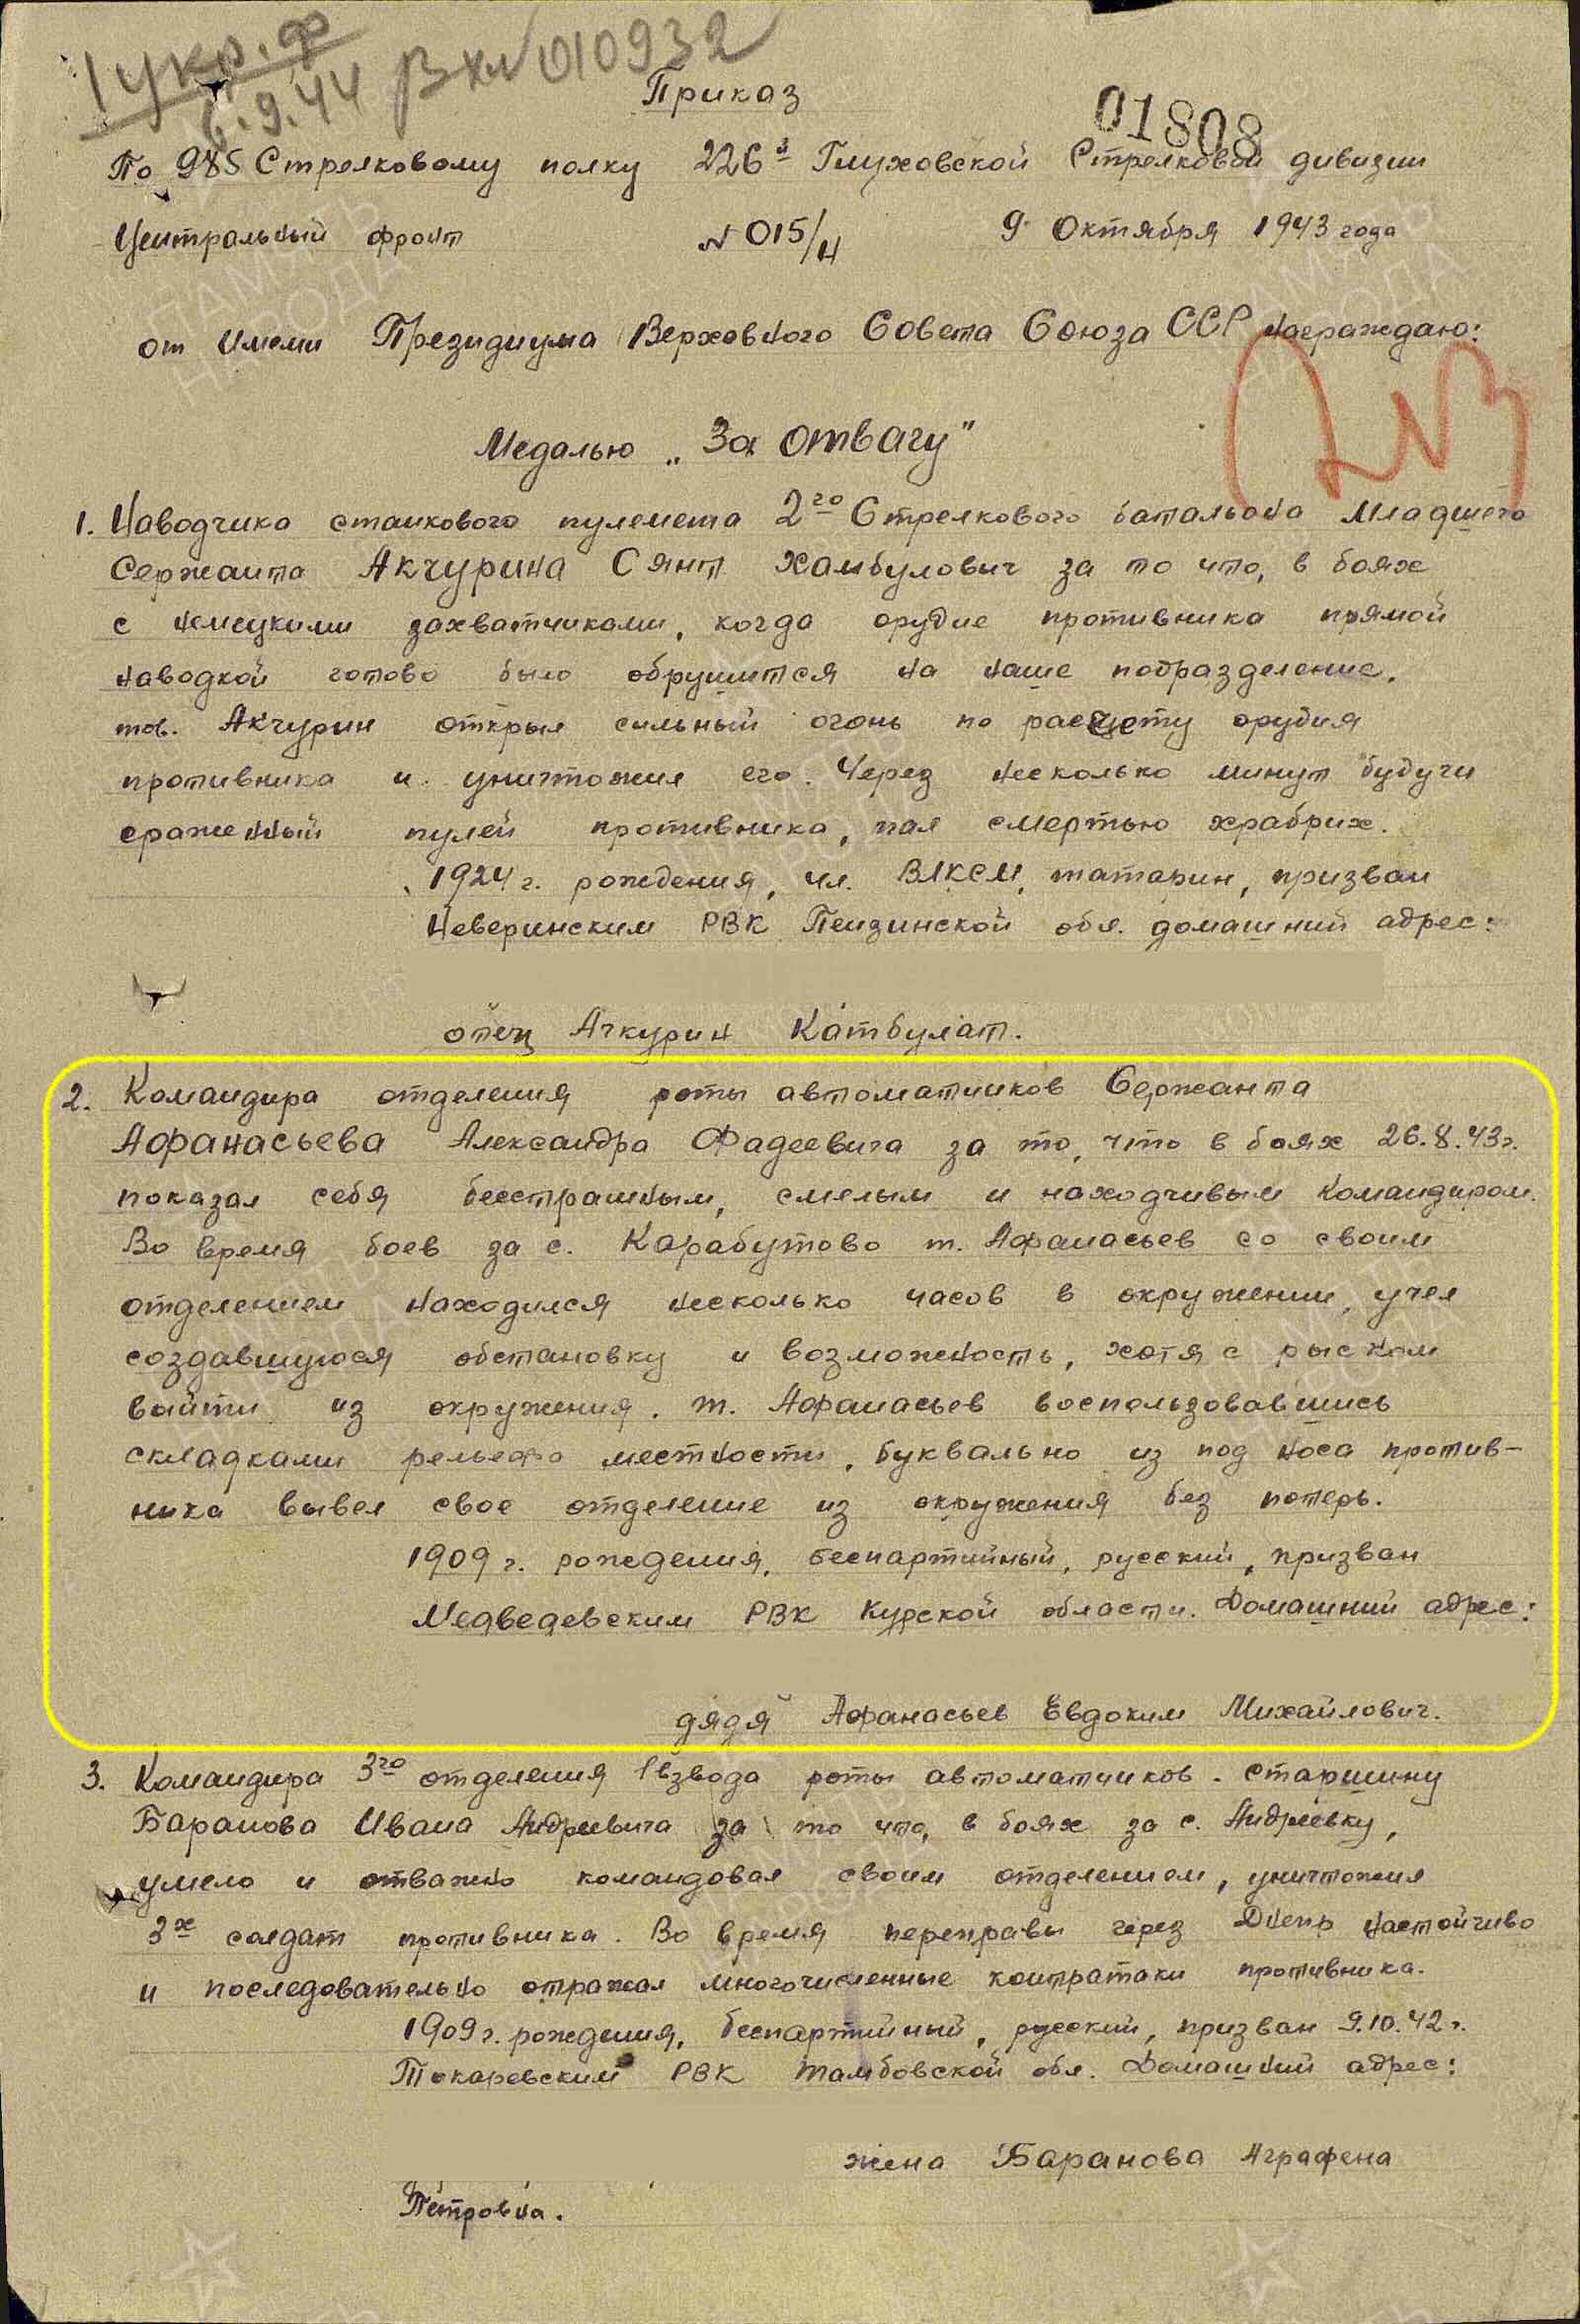 1 укр. ф
6.9.44 Вх№010932
Приказ
01808
По 985 Стрелковому полку 226й Глуховской Стрелковой дивизии
Центральный фронт № 015/н 9 Октября 1943 года
от имени Президиума Верховного Совета Союза ССР награждаю:
Медалью „За отвагу"
1. Наводчика станкового пулемета 2го Стрелкового батальона Младшего
Сержанта Акчурина Сянт Хамбулович за то что, в боях
с немецкими захватчиками, когда орудие противника прямой
наводкой готово было обрушится на наше подразделение,
тов. Акчурин открыл сильный огонь по расчету орудия
противника и уничтожил его. Через несколько минут будучи
сраженный пулей противника, пал смертью храбрих.
1924 г. рождения, чл. ВЛКСМ, татарин, призван
Неверинским РВК Пензинской обл. домашний адрес:
отец Ачкурин Катбулат.
2. Командира отделения роты автоматчиков Сержанта
Афанасьева Александра Фадеевича за то, что в боях 26.8.43г.
показал себя бесстрашным, смелым и находчивым командиром.
Во время боев за с. Карабутово т. Афанасьев со своим
отделением находился несколько часов в окружении, учел
создавшуюся обстановку и возможность, хотя с рыском
выйти из окружения. т. Афанасьев воспользовавшись
складками рельефа местности, буквально из под носа против-
ника вывел свое отделение из окружения без потерь.
1909 г. рождения, беспартийный, русский, призван
Медведевским РВК Курской области. Домашний адрес:
дядя Афанасьев Евдоким Михайлович.
3. Командира 3го отделения 1 взвода роты автоматчиков - старшину
Баранова Ивана Андреевича за то что, в боях за с. Андреевку,
умело и отважно командовал своим отделением, уничтожил
3х солдат противника. Во время переправы через Днепр настойчиво
и последовательно отражал многочисленные контратаки противника.
1909 г. рождения, беспартийный, русский, призван 9.10.42 г.
Токаревским РВК Тамбовской обл. Домашний адрес:
жена Баранова Аграфена
Петровна.